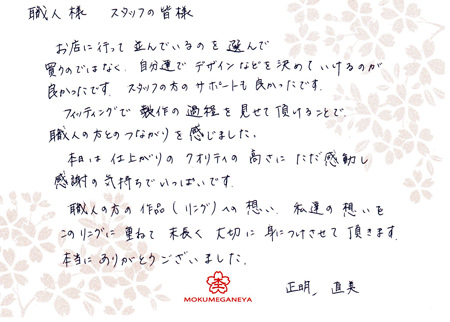 職人様　スタッフの皆様
お店に行って並んでいるのを選んで
買うのではなく、自分達でデザインなどを決めていけるのが
良かったです。スタッフの方のサポートも良かったです。
フィッティングで製作の過程を見せて頂けることで、
職人の方とのつながりを感じました。
本日は仕上がりのクオリティの高さにただ感動し
感謝の気持ちでいっぱいです。
職人の方の作品(リング)への想い、私達の想いを
このリングに重ねて末長く大切に身につけさせて頂きます。
本当にありがとうございました。
正明、直美
MOKUMEGANEYA